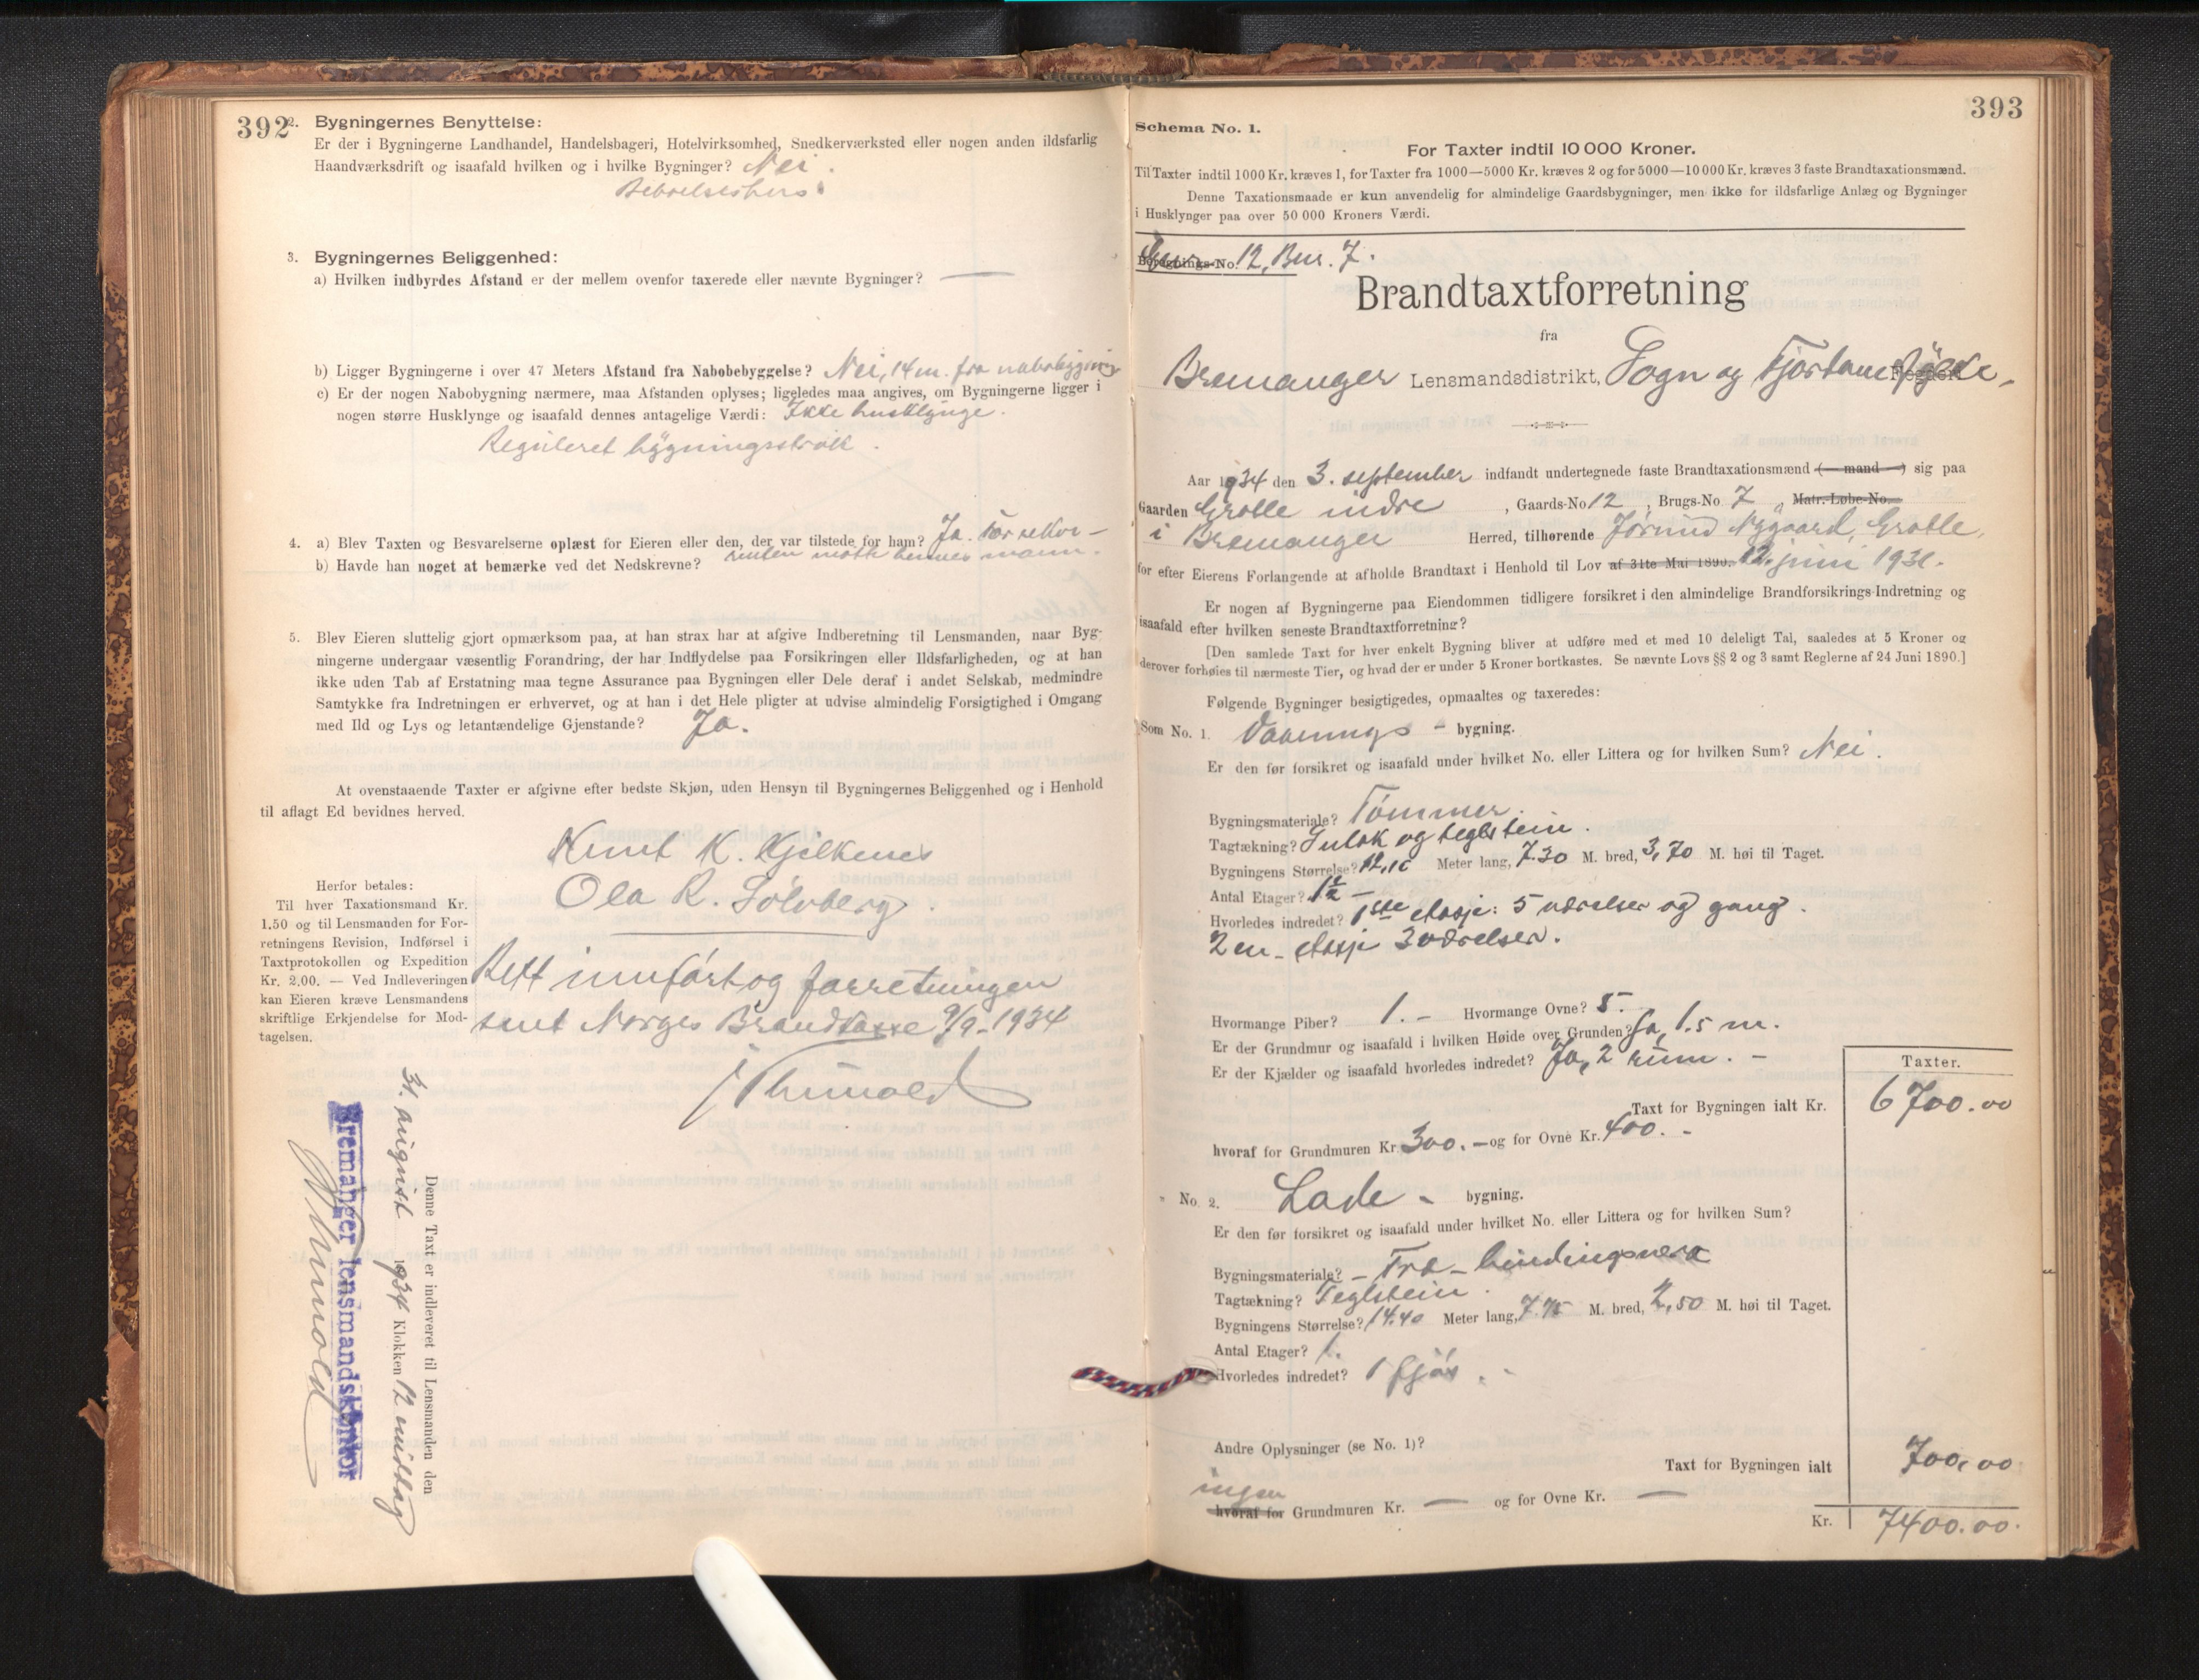 392
2. Bygningernes Benyttelse:
Er der i Bygningerne Landhandel, Handelsbageri, Hotelvirksomhed, Snedkerværksted eller nogen anden ildsfarlig
Haandværksdrift og isaafald hvilken og i hvilke Bygninger? Nei.
Beboelseshus
3. Bygningernes Beliggenhed:
a) Hvilken indbyrdes Afstand er der mellem ovenfor taxerede eller nævnte Bygninger? —
b) Ligger Bygningerne i over 47 Meters Afstand fra Nabobebyggelse? Nei, 14 m. fra nabobygning
c) Er der nogen Nabobygning nærmere, maa Afstanden oplyses; ligeledes maa angives, om Bygningerne ligger i
nogen større Husklynge og isaafald dennes antagelige Værdi: Ikke husklynge.
Reguleret bygningsstrøk.
4. a) Blev Taxten og Besvarelserne oplæst for Eieren eller den, der var tilstede for ham? Ja. For rekvi-
b) Havde han noget at bemærke ved det Nedskrevne? renten møtte hennes mann.
5. Blev Eieren sluttelig gjort opmærksom paa, at han strax har at afgive Indberetning til Lensmanden, naar Byg-
ningerne undergaar væsentlig Forandring, der har Indflydelse paa Forsikringen eller Ildsfarligheden, og at han
ikke uden Tab af Erstatning maa tegne Assurance paa Bygningen eller Dele deraf i andet Selskab, medmindre
Samtykke fra Indretningen er erhvervet, og at han i det Hele pligter at udvise almindelig Forsigtighed i Omgang
med Ild og Lys og letantændelige Gjenstande? Ja.
At ovenstaaende Taxter er afgivne efter bedste Skjøn, uden Hensyn til Bygningernes Beliggenhed og i Henhold
til aflagt Ed bevidnes herved.
Knut K. Kjelkenes
Ola R. Solvberg.
Herfor betales:
Til hver Taxationsmand Kr.
1.50 og til Lensmanden for For-
retningens Revision, Indførsel i
Taxtprotokollen og Expedition
Kr. 2.00. — Ved Indleveringen
kan Eieren kræve Lensmandens
skriftlige Erkjendelse for Mod-
tagelsen.
Rett innført og forretningen
sent Norges Brandkasse 9/9-1934
Denne Taxt er indleveret til Lensmanden den
31. august 1934 Klokken 12 middag
Bremanger lensmandskontor
393
Schema No. 1.
For Taxter indtil 10 000 Kroner.
Til Taxter indtil 1000 Kr. kræves 1, for Taxter fra 1000—5000 Kr. kræves 2 og for 5000—10 000 Kr. kræves 3 faste Brandtaxationsmænd.
Denne Taxationsmaade er kun anvendelig for almindelige Gaardsbygninger, men ikke for ildsfarlige Anlæg og Bygninger
i Husklynger paa over 50 000 Kroners Værdi.
Bebygnings-No. 12, Bnr. 7.
Brandtaxtforretning
fra
Bremanger Lensmandsdistrikt, Sogn og Fjordane fylke.
Aar 1934 den 3. september indfandt undertegnede faste Brandtaxationsmænd (— mand —) sig paa
Gaarden Grotle indre, Gaards-No 12, Brugs-No 7, Matr.-Løbe-No.
i Bremanger Herred, tilhørende Jorund Nygaard, Grotle,
for efter Eierens Forlangende at afholde Brandtaxt i Henhold til Lov af 31te Mai 1890. 12. juni 1931.
Er nogen af Bygningerne paa Eiendommen tidligere forsikret i den almindelige Brandforsikrings-Indretning og
isaafald efter hvilken seneste Brandtaxtforretning?
[Den samlede Taxt for hver enkelt Bygning bliver at udføre med et med 10 deleligt Tal, saaledes at 5 Kroner og
derover forhøies til nærmeste Tier, og hvad der er under 5 Kroner bortkastes. Se nævnte Lovs §§ 2 og 3 samt Reglerne af 24 Juni 1890.]
Følgende Bygninger besigtigedes, opmaaltes og taxeredes:
Som No. 1. Vaanings - bygning.
Er den før forsikret og isaafald under hvilket No. eller Littera og for hvilken Sum? Nei.
Bygningsmateriale? Tømmer.
Tagtækning? Sutak og teglstein.
Bygningens Størrelse? 12,10 Meter lang, 7.30 M. bred, 3,70 M. høi til Taget.
Antal Etager? 1½ —
Hvorledes indredet? 1ste etasje: 5 værelser og gang.
2en - etasje 3 værelser.
Hvormange Piber? 1. — Hvormange Ovne? 5.
Er der Grundmur og isaafald i hvilken Høide over Grunden? Ja, 1.5 m.
Er der Kjælder og isaafald hvorledes indredet? Ja, 2 rum. —
Taxter.
Taxt for Bygningen ialt Kr. 6700.00
hvoraf for Grundmuren Kr. 300. — og for Ovne Kr. 400. —
No. 2. Lade - bygning.
Er den før forsikret og isaafald under hvilket No. eller Littera og for hvilken Sum?
Bygningsmateriale? - Tre - bindingsverk
Tagtækning? Teglstein.
Bygningens Størrelse? 14.40 Meter lang, 7.75 M. bred, 2,50 M. høi til Taget.
Antal Etager? 1.
Hvorledes indredet? 1 fjøs.
Andre Oplysninger (se No. 1)?
Taxt for Bygningen ialt 700.00
ingen
hvoraf for Grundmuren Kr. — og for Ovne Kr. —
Kr. 7400.00.